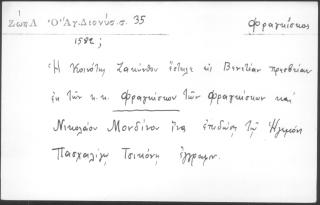 Ζώη Λ Ὁ Ἅγ. Διονύσ. σ. 35
Φραγκίσκος
1582;
Ἡ Κοινότης Ζακύνθου ἔστειλε εἰς Βενετίαν πρεσβείαν
ἐκ τῶν κ.κ. Φραγκίσκου τῶν Φραγκίσκων καὶ
Νικολάου Μονδίνου ἵνα ἐπιδώσῃ τῷ Ἡγεμόνι
Πασχαλίγῳ Τσικόνῃ ἔγγραφον.